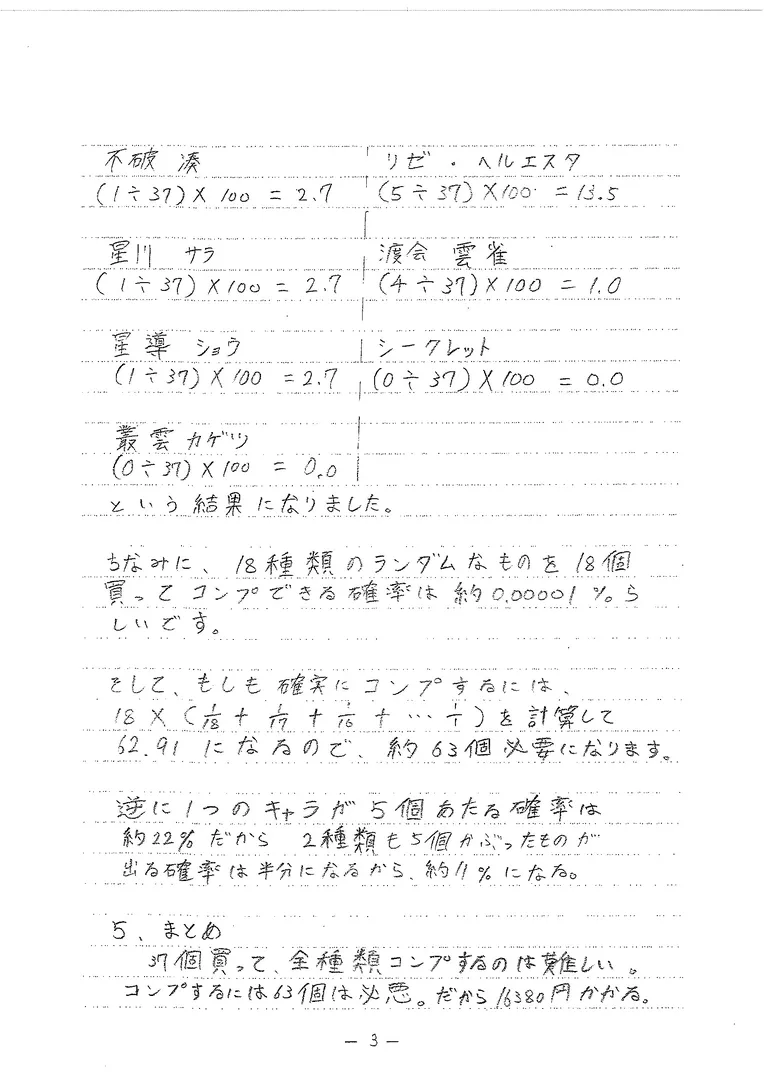 不破 湊
(1÷37)×100 = 2.7
リゼ・ヘルエスタ
(5÷37)×100 = 13.5
星川 サラ
(1÷37)×100 = 2.7
渡会 雲雀
(4÷37)×100 = 1.0
星導 ショウ
(1÷37)×100 = 2.7
シークレット
(0÷37)×100 = 0.0
叢雲 カゲツ
(0÷37)×100 = 0.0
という結果になりました。
ちなみに、18種類のランダムなものを18個
買ってコンプできる確率は約0.00001%ら
しいです。
そして、もしも確実にコンプするには、
18×(1/18+1/17+1/16+…1/1)を計算して
62.91になるので、約63個必要になります。
逆に1つのキャラが5個あたる確率は
約22%だから 2種類も5個かぶったものが
出る確率は半分になるから、約11%になる。
5、まとめ
37個買って、全種類コンプするのは難しい。
コンプするには63個は必悪。だから16380円かかる。
— 3 —